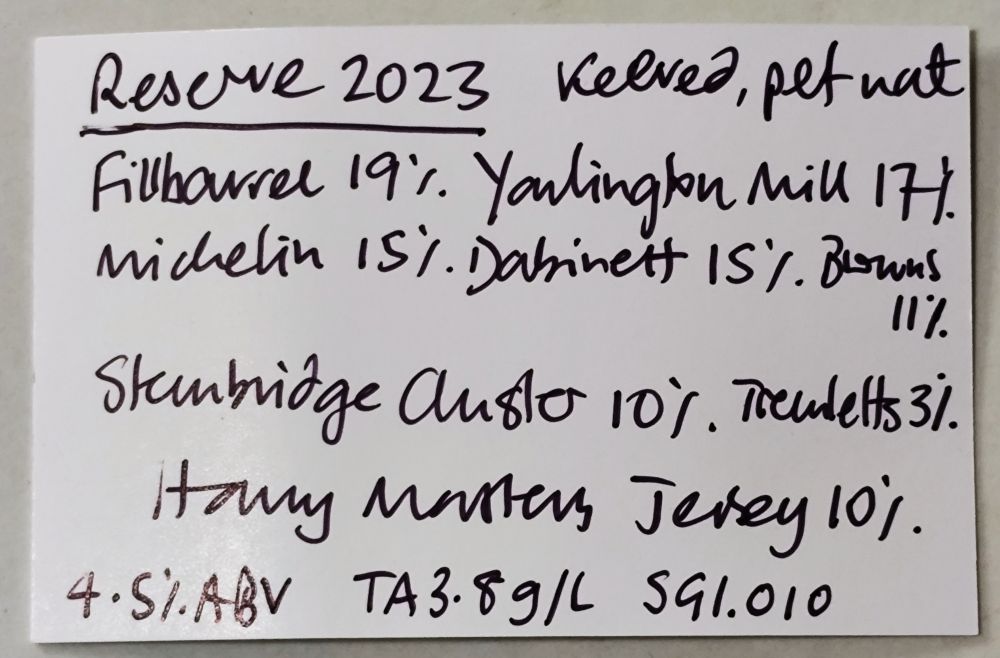 Reserve 2023 Keeved, pet nat
Fillbarrel 19% Yarlington Mill 17%
Michelin 15% Dabinett 15% Browns
11%
Stembridge Cluster 10% Tremletts 3%
Harry Masters Jersey 10%
4.5% ABV TA 3.8g/L SG1.010